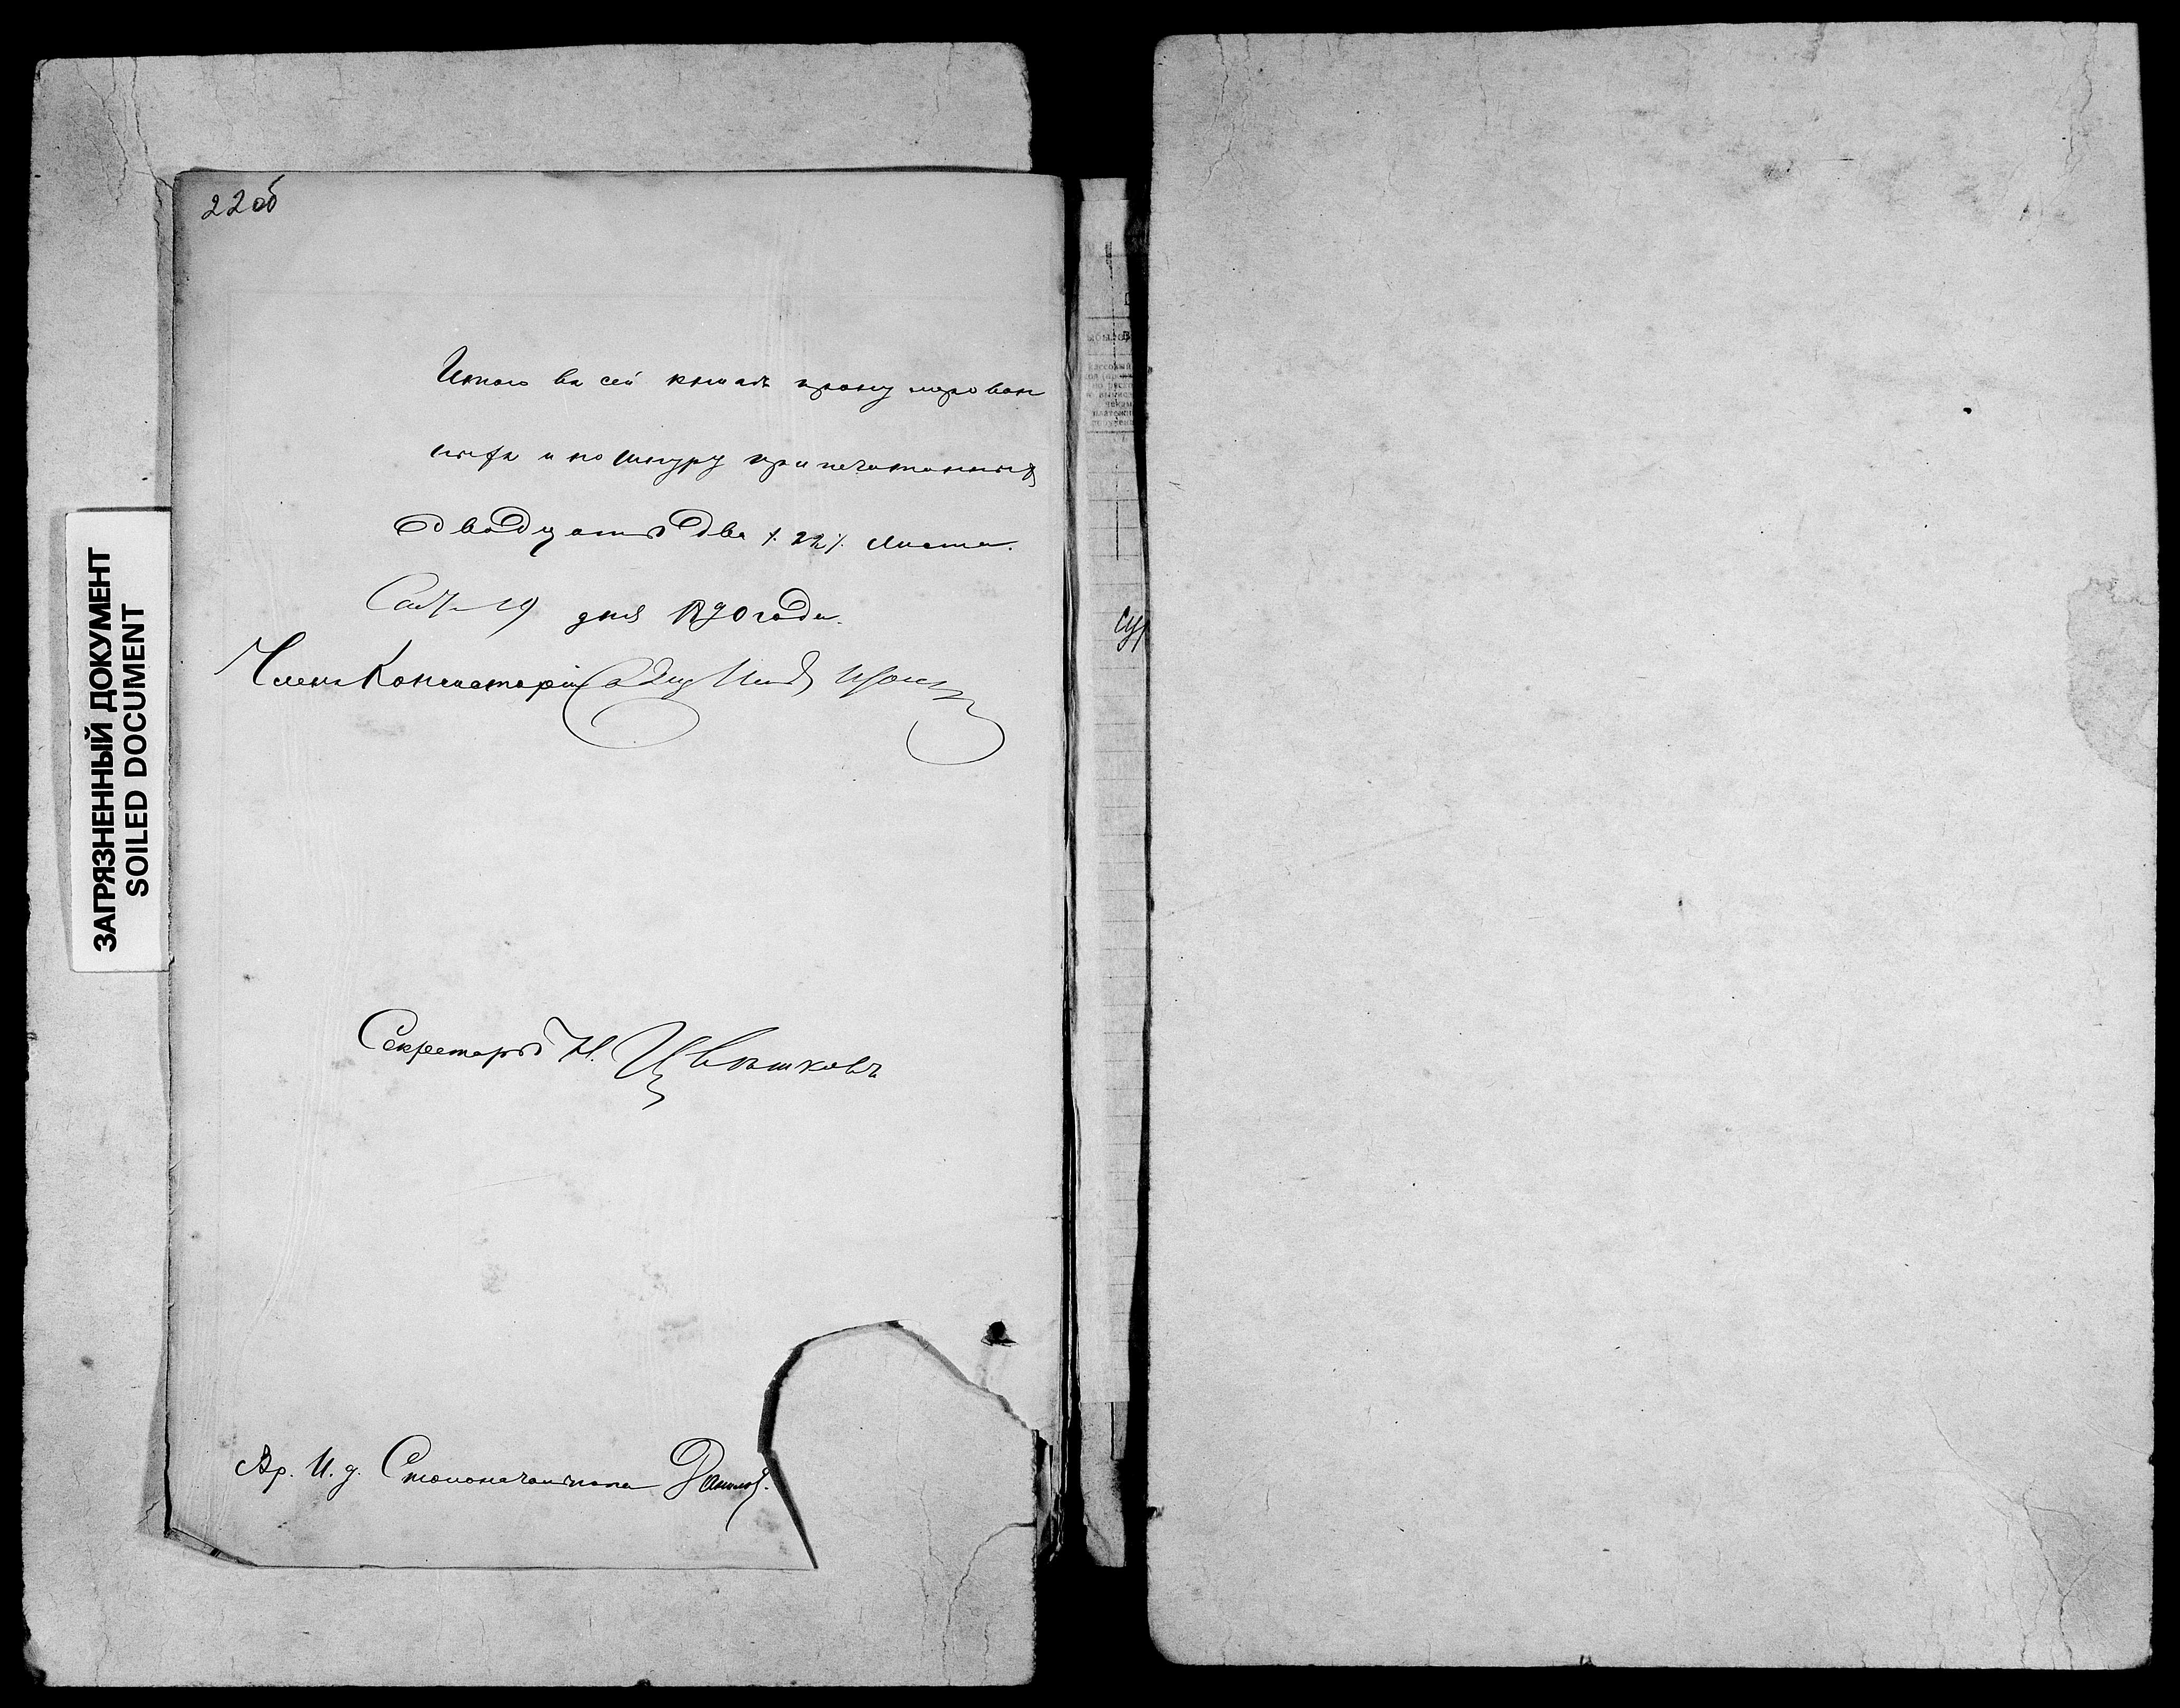 22 об
Итого въ сей книгѣ пронумерован
ныхъ и по шнуру припечатанныхъ
двадцать два /. 22 /. листа.
19 дня 1890 года.
Членъ Консисторіи
Секретарь Н. Цвѣтковъ
Вр. И. д. Столоначальника Данилов.
ЗАГРЯЗНЕННЫЙ ДОКУМЕНТ
SOILED DOCUMENT